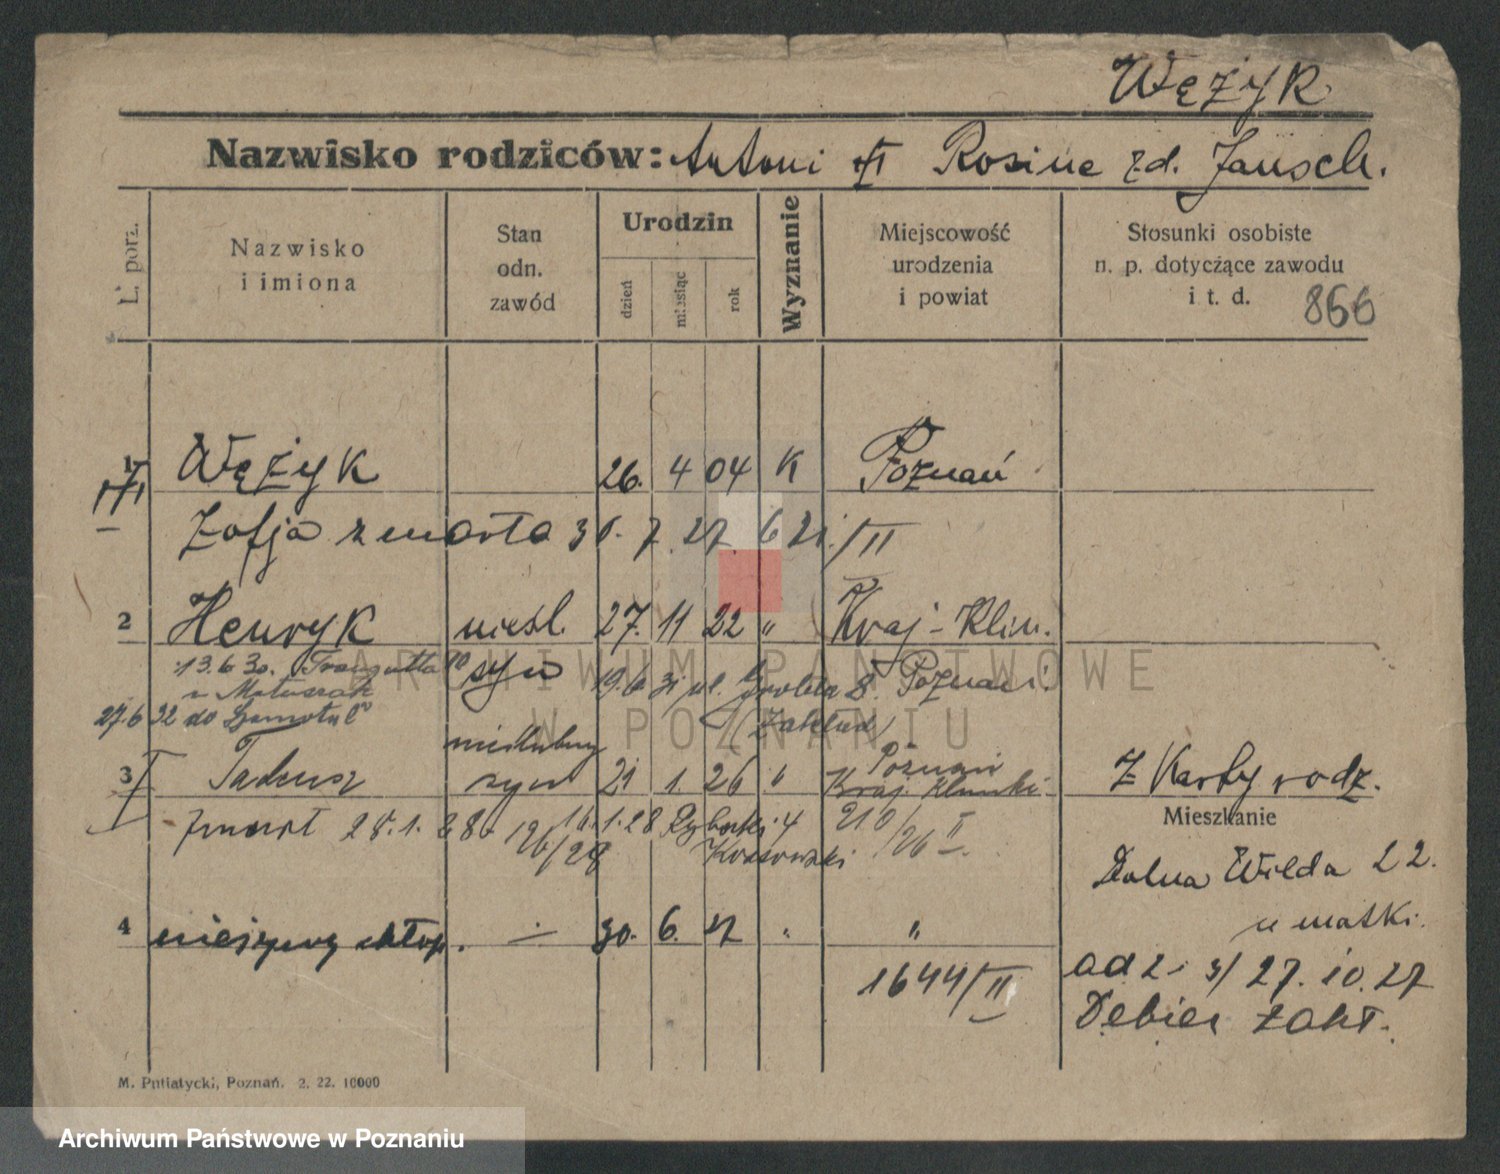 Wężyk
Nazwisko rodziców: Antoni Rosine zd. Jausch.
L. porz.
Nazwisko i imiona
Stan odn. zawód
Urodzin
dzień
miesiąc
rok
Wyznanie
Miejscowość urodzenia i powiat
Stosunki osobiste n. p. dotyczące zawodu i t. d.
866
1 Wężyk 26. 4 04 K Poznań
Zofja zmarła 30. 7. 27 621/II
2 Henryk nieśl. 27. 11 22 " Kraj-Klin.
13.6 30. Traugutta syn 19.6 31 ul. Grobla 8. Poznań.
u Matuszak
27.6 32 do Szamotuł Zakład
nieślubny Poznań
3 Tadeusz syn 21 1. 26 " Kraj Kliniki Z Karty rodz.
Mieszkanie
Zmarł 28. 1. 28 - 126/28 16.1.28 Rybaki 4 210/26 II.
Kossowski
Dolna Wilda 22.
u matki.
4 nieżywy chłop. — 30. 6. 27 " "
1644/II
ad 2 i 3/ 27. 10. 27
Dębiec Zakł.
M. Putiatycki, Poznań. 2. 22. 10000
ARCHIWUM PAŃSTWOWE
W POZNANIU
Archiwum Państwowe w Poznaniu